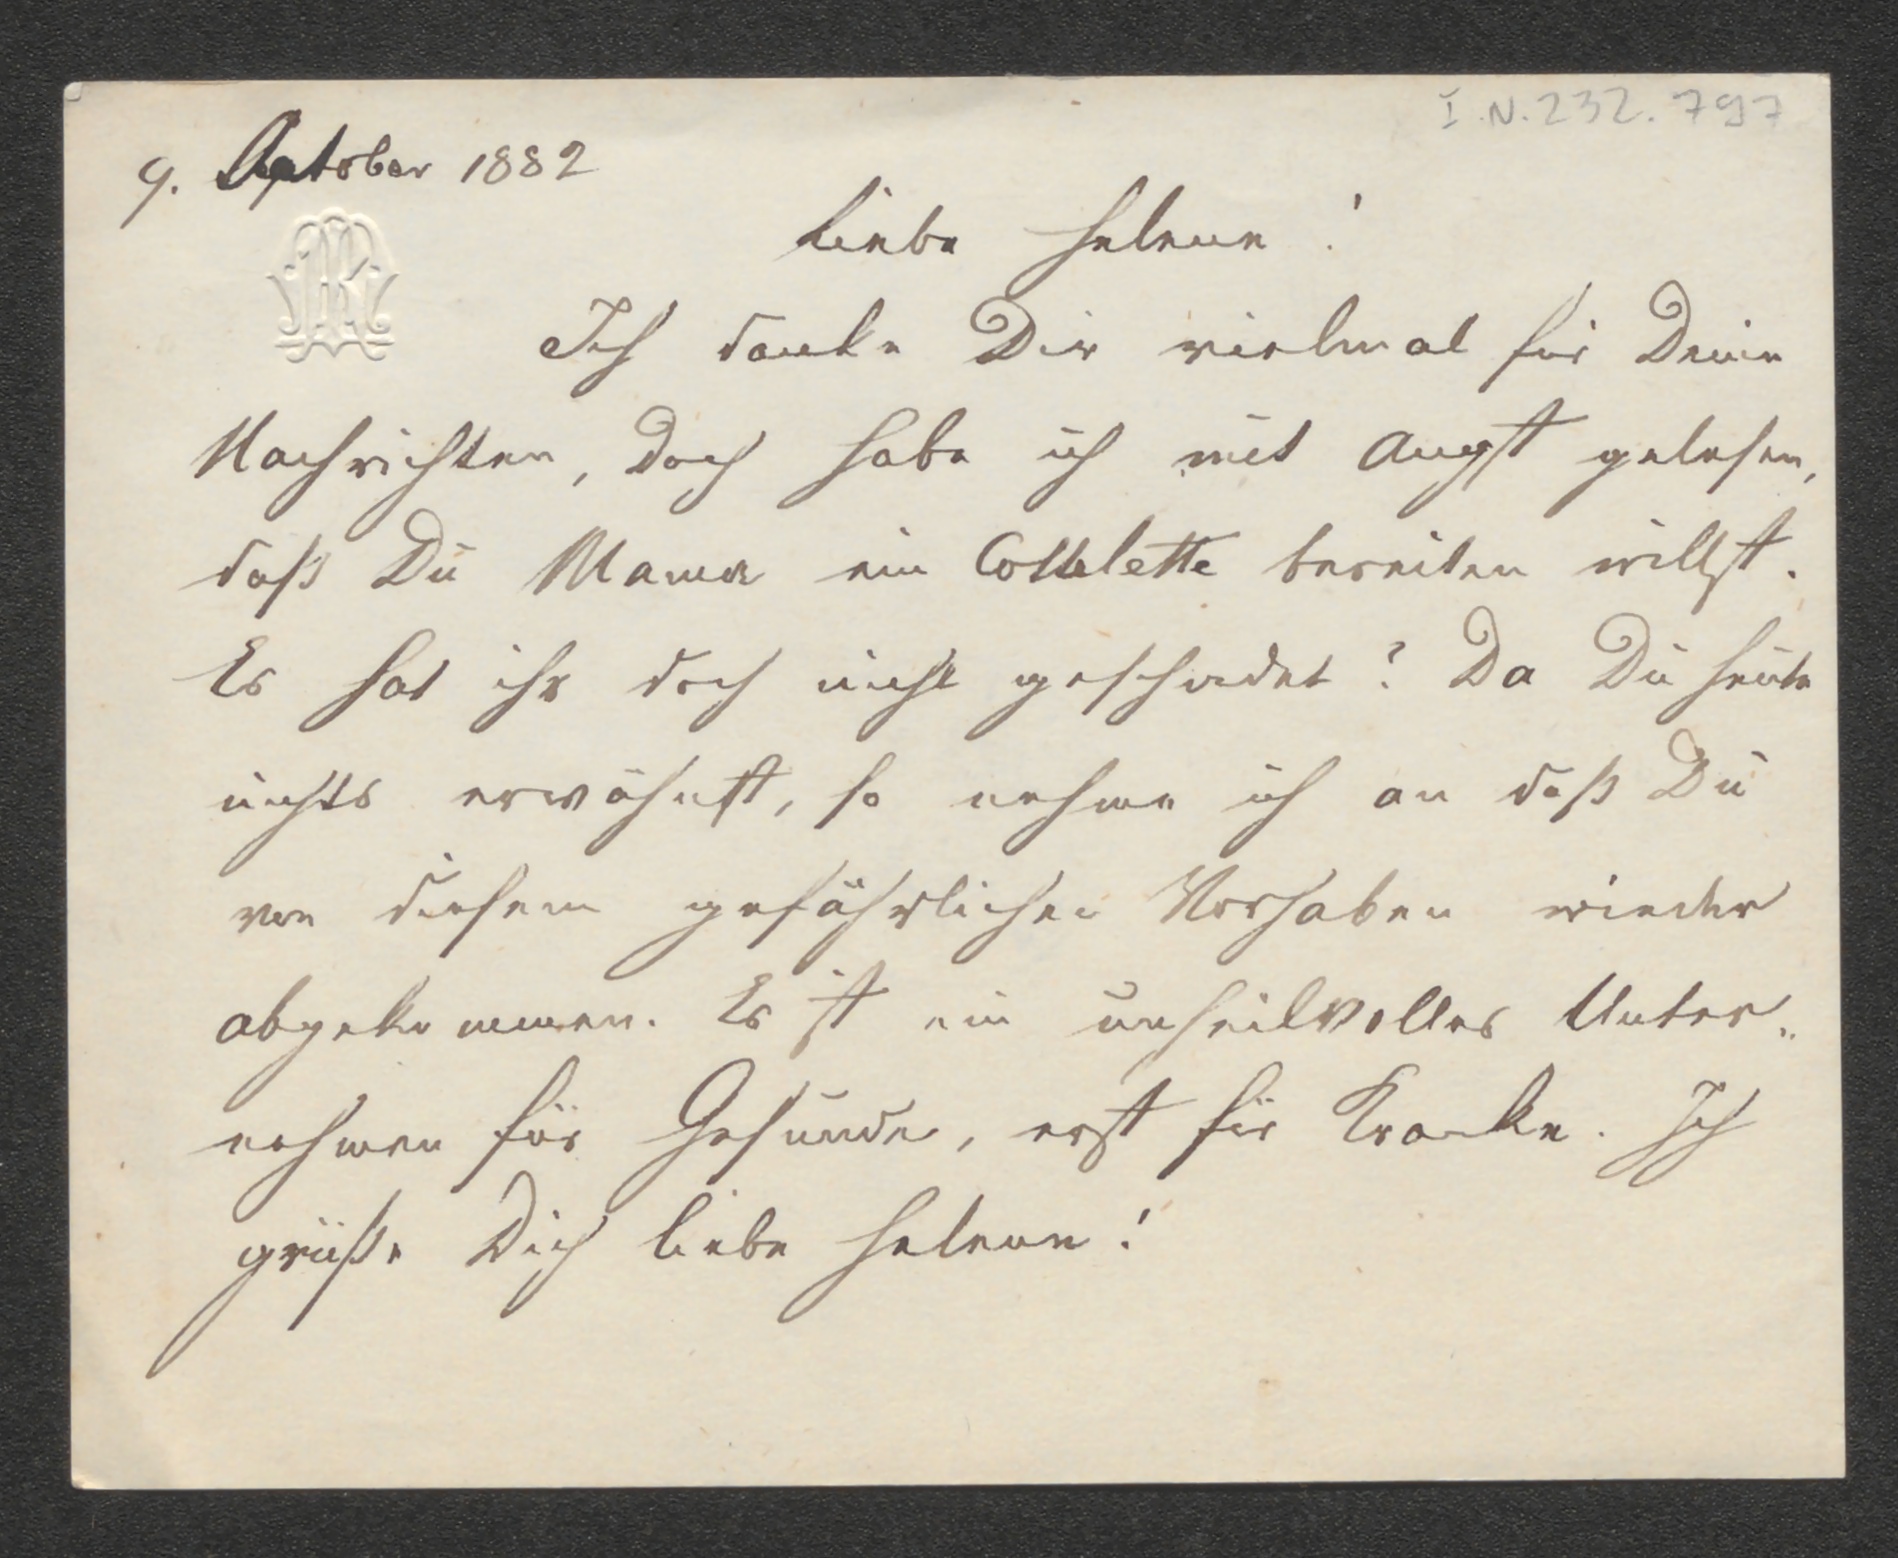 I.N.232.797
9. October 1882
Liebe Helene!
Ich danke Dir vielmal für Deine
Nachrichten, doch habe ich mit Angst gelesen,
daß Du Mama ein Cottelette bereiten willst.
Es hat ihr doch nicht geschadet? Da Du heute
nichts erwähnst, so nehme ich an daß Du
von diesem gefährlichen Vorhaben wieder
abgekommen. Es ist ein unheilvolles Unter„
nehmen für Gesunde, erst für Kranke. Ich
grüße Dich liebe Helene!